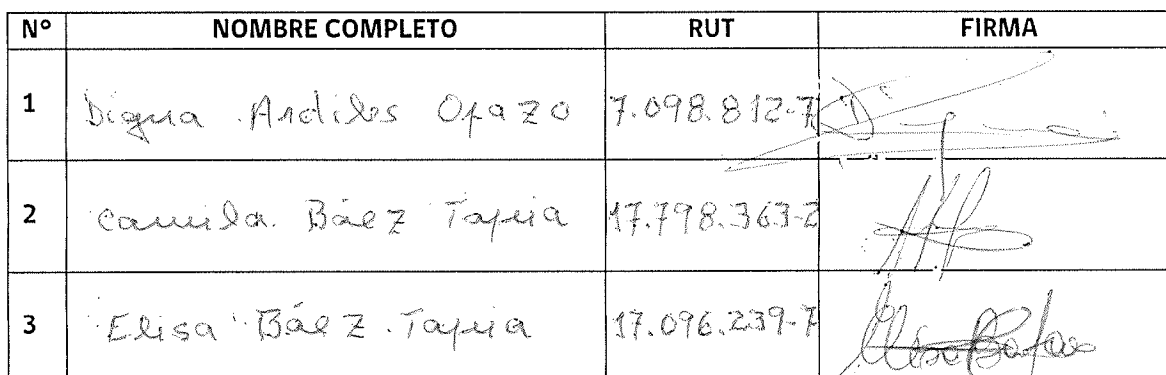 N° NOMBRE COMPLETO RUT FIRMA
1 Digna Ardiles Opazo 7.098.812-7
2 Camila Báez Tapia 17.798.363-2
3 Elisa Báez Tapia 17.096.239-7